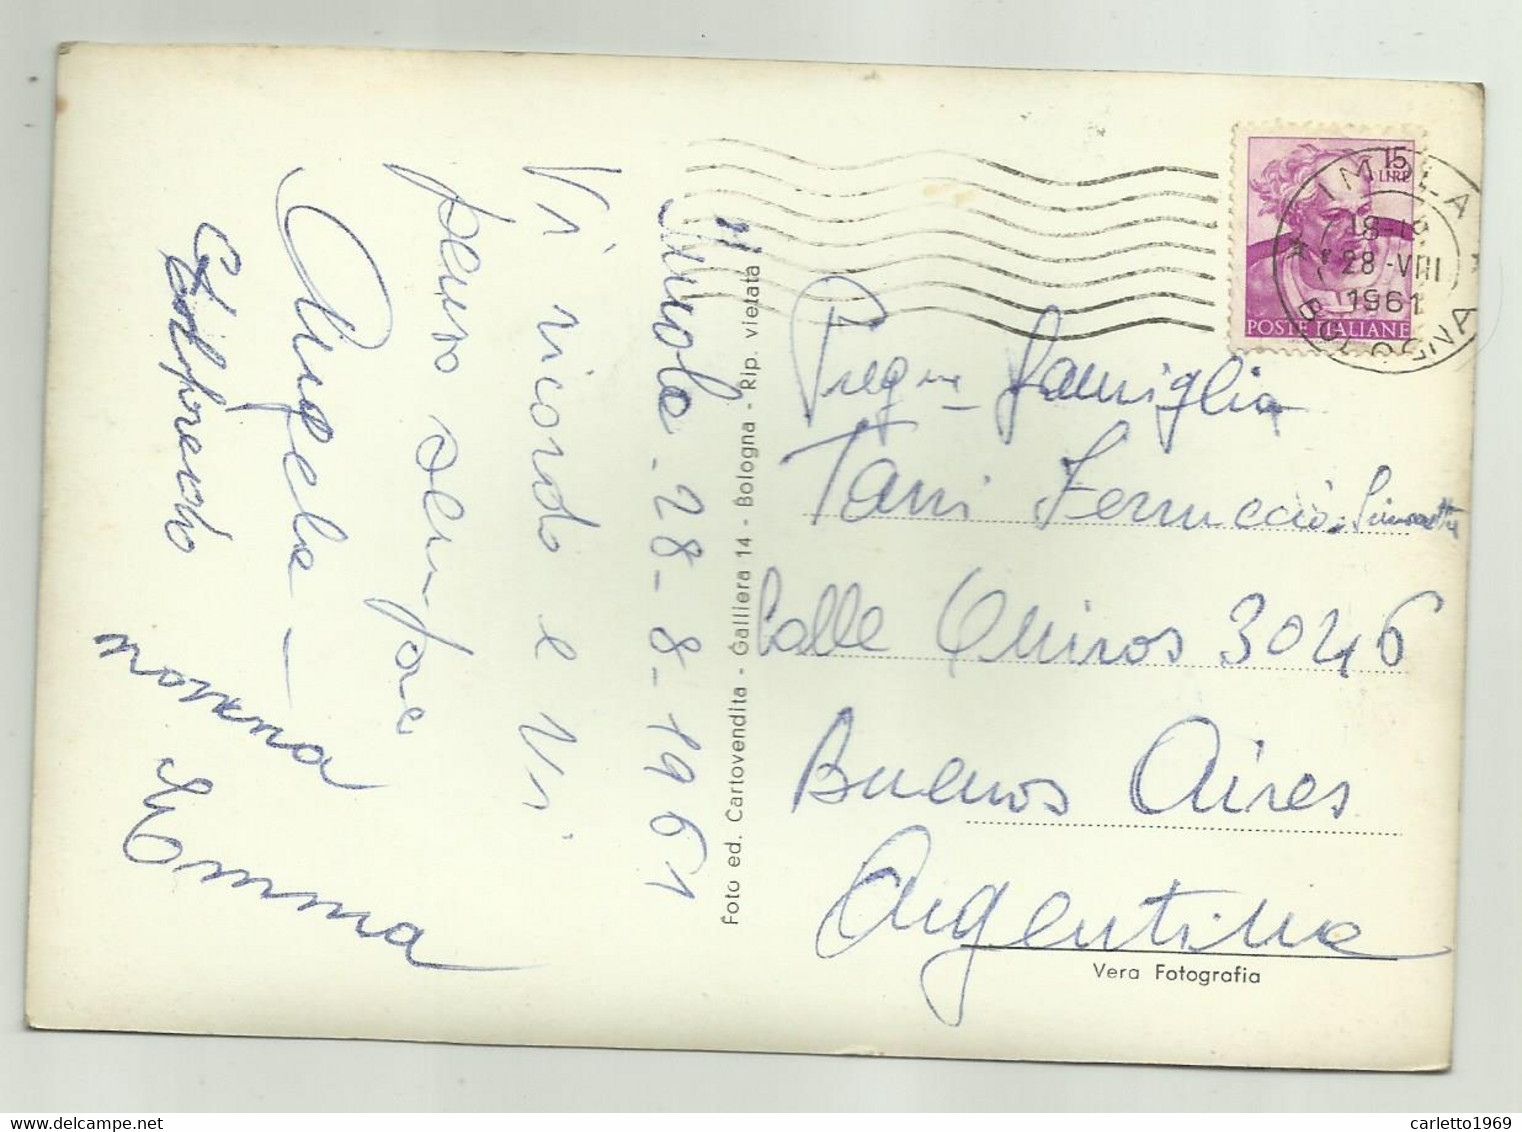 Imola - 28-8-1961
Vi ricordo e Vi
penso sempre
Angela -
nonna
Emma
Foto ed. Cartovendita - Galliera 14 - Bologna - Rip. vietata
15
LIRE
POSTE ITALIANE
IMOLA
28-VIII
1961
BOLOGNA
famiglia
Ferruccio
Calle Quiros 3046
Buenos Aires
Argentina
Vera Fotografia
carletto1969